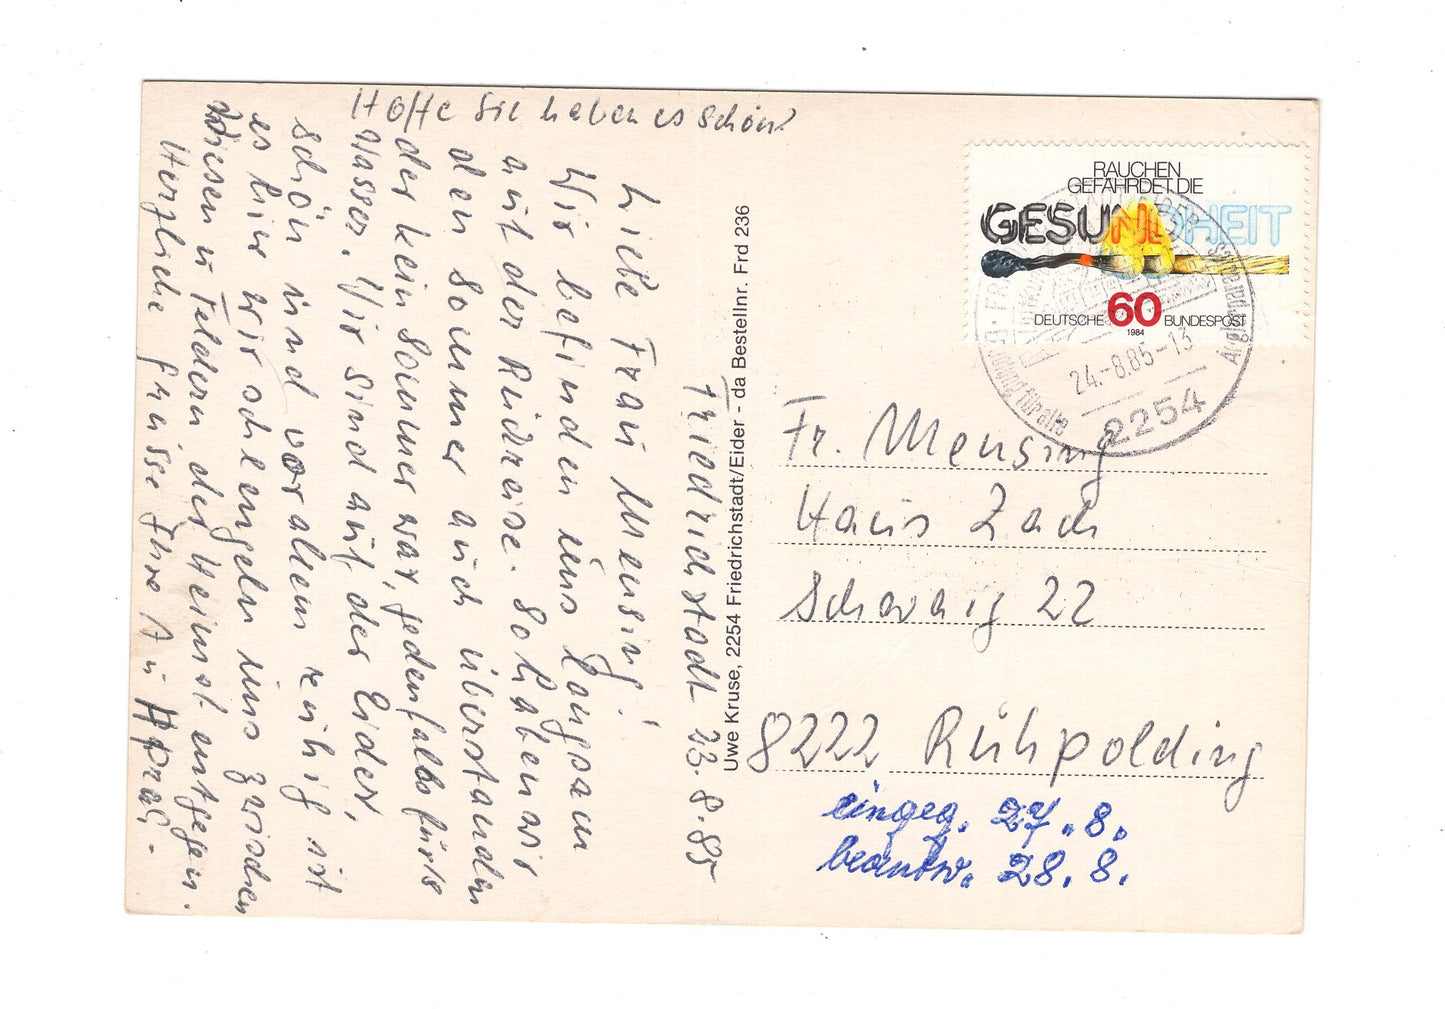 Hoffe Sie haben es schön?
Friedrichstadt 23.8.85
Liebe Frau Mensing!
Wir befinden uns langsam
auf der Rückreise. So haben wir
den Sommer auch überstanden
der kein Sommer war, jedenfalls fürs
Wasser. Wir sind auf der Eider,
schön und vor allem ruhig ist
es hier wir schlengeln uns zwischen
Wiesen u Feldern der Heimat entgegen.
Herzliche Grüsse Ihre A u
Uwe Kruse, 2254 Friedrichstadt/Eider - da Bestellnr. Frd 236
RAUCHEN
GEFÄHRDET DIE
GESUNDHEIT
DEUTSCHE 60 BUNDESPOST
1984
24.-8.85-13
2254
Fr. Mensing
Haus Zach
Schwaig 22
8222 Ruhpolding
eingeg. 27.8.
beantw. 28.8.